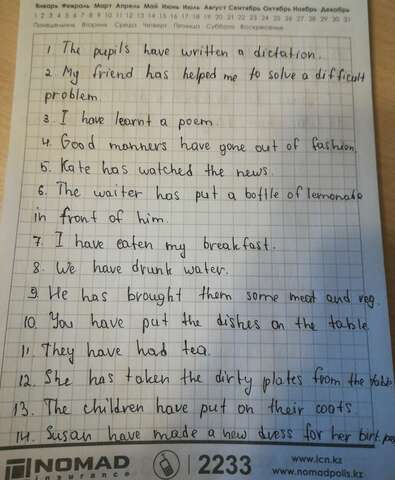 Январь Февраль Март Апрель Май Июнь Июль Август Сентябрь Октябрь Ноябрь Декабрь
1 2 3 4 5 6 7 8 9 10 11 12 13 14 15 16 17 18 19 20 21 22 23 24 25 26 27 28 29 30 31
Понедельник Вторник Среда Четверг Пятница Суббота Воскресенье
1 The pupils have written a dictation.
2. My friend has helped me to solve a difficult
problem.
3. I have learnt a poem.
4. Good manners have gone out of fashion.
5. Kate has watched the news.
6. The waiter has put a bottle of lemonade
in front of him.
7. I have eaten my breakfast.
8. We have drunk water.
9. He has brought them some meat and veg.
10. You have put the dishes on the table.
11. They have had tea.
12. She has taken the dirty plates from the table
13. The children have put on their coats.
14. Susan have made a new dress for her birt.
NOMAD
insurance
2233
www.icn.kz
www.nomadpolis.kz